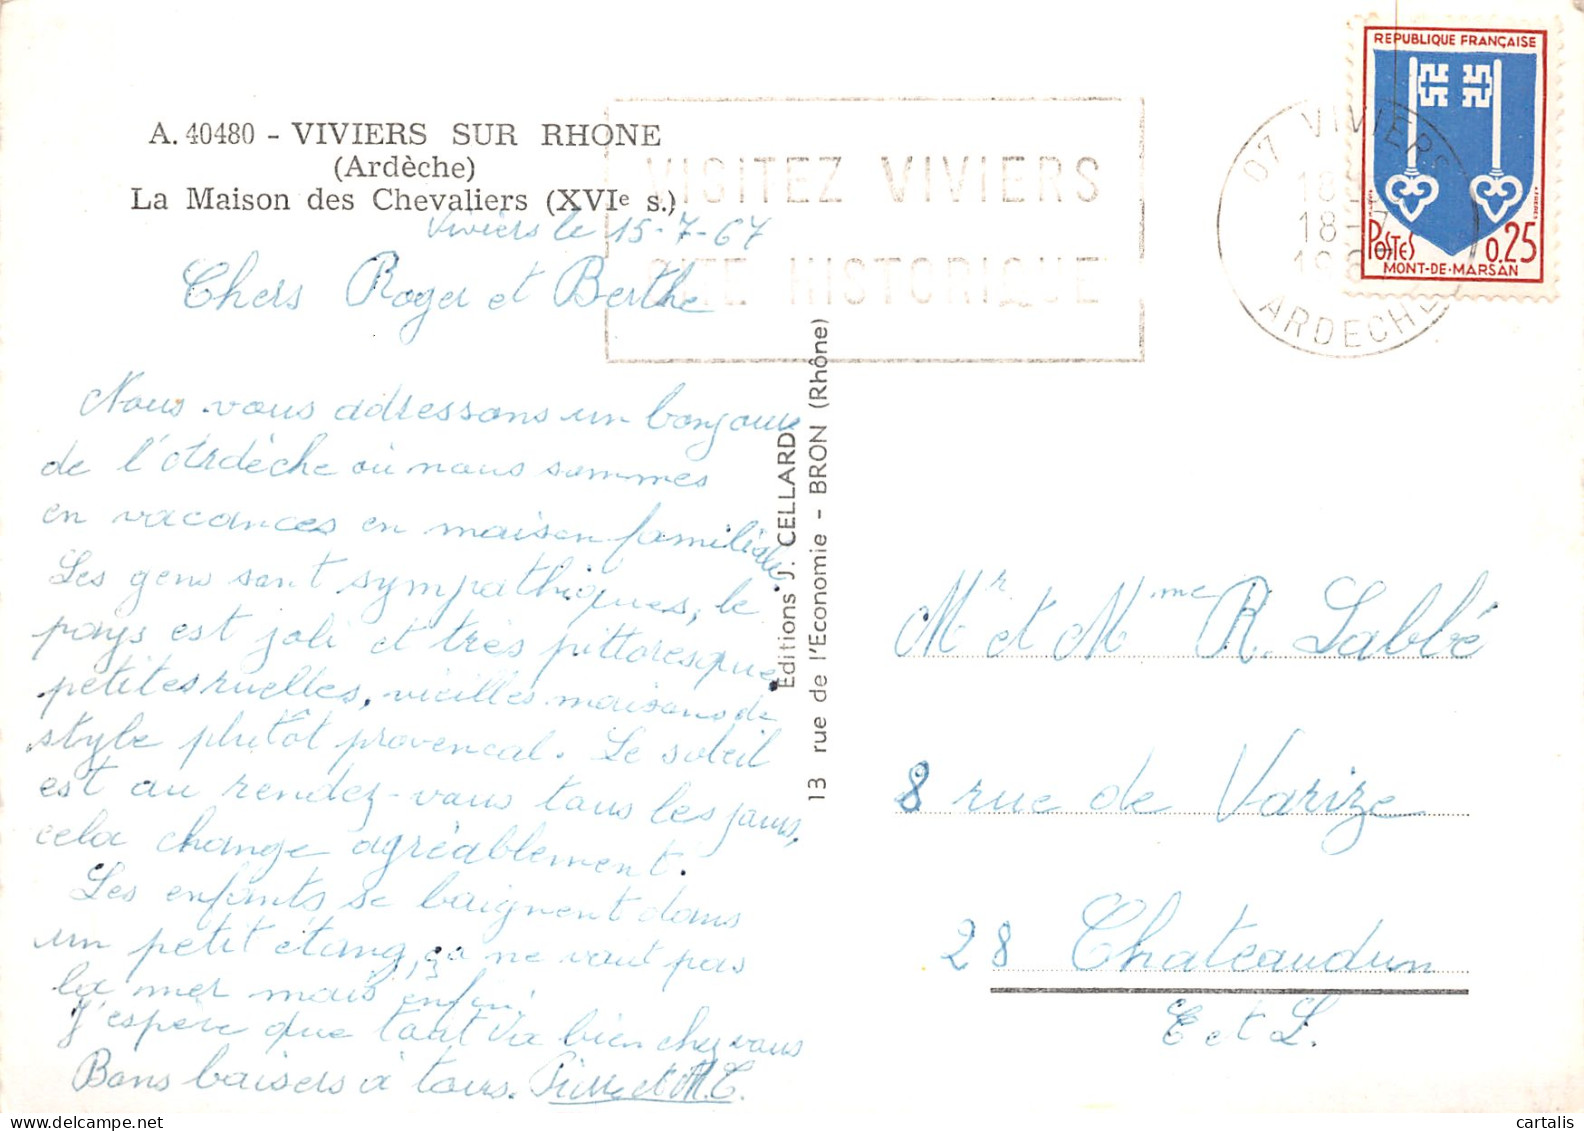 A. 40480 - VIVIERS SUR RHONE
(Ardèche)
La Maison des Chevaliers (XVIe s.)
VISITEZ VIVIERS
CITE HISTORIQUE
07 VIVIERS
18-7
ARDECHE
REPUBLIQUE FRANÇAISE
POSTES 0,25
MONT-DE-MARSAN
Viviers le 15-7-67
Chers Roger et Berthe
Nous vous adressons un bonjour
de l'Ardèche où nous sommes
en vacances en maison familiale
Les gens sont sympathiques, le
pays est joli et très pittoresque,
petites ruelles, vieilles maisons de
style plutôt provencal. Le soleil
est au rendez-vous tous les jours,
cela change agréablement.
Les enfants se baignent dans
un petit étang, ça ne vaut pas
la mer mais enfin.
J'espère que tout va bien chez vous
Bons baisers à tous. Pierre et M.C.
Editions J. CELLARD
13 rue de l'Economie - BRON (Rhône)
Mr et Mme R. Labbé
8 rue de Varize
28 Chateaudun
E et L.
cartalis